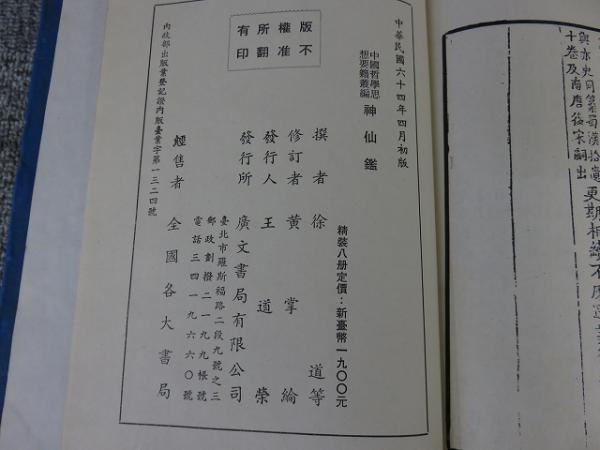 與亦史同集蜀漢拾
十卷及南唐後宋詞出
更期
中華民國六十四年四月初版
中國哲學思想要籍叢編
神仙鑑
精裝八册定價：新臺幣一九〇〇元
撰者 徐道等
修訂者 黃掌綸
發行人 王道榮
發行所 廣文書局有限公司
臺北市羅斯福路二段九號之三
郵政劃撥二一九九帳號
電話三四一九六六〇號
經售者 全國各大書局
內政部出版業登記證內版臺業字第一三二四號
版權所有
不准翻印